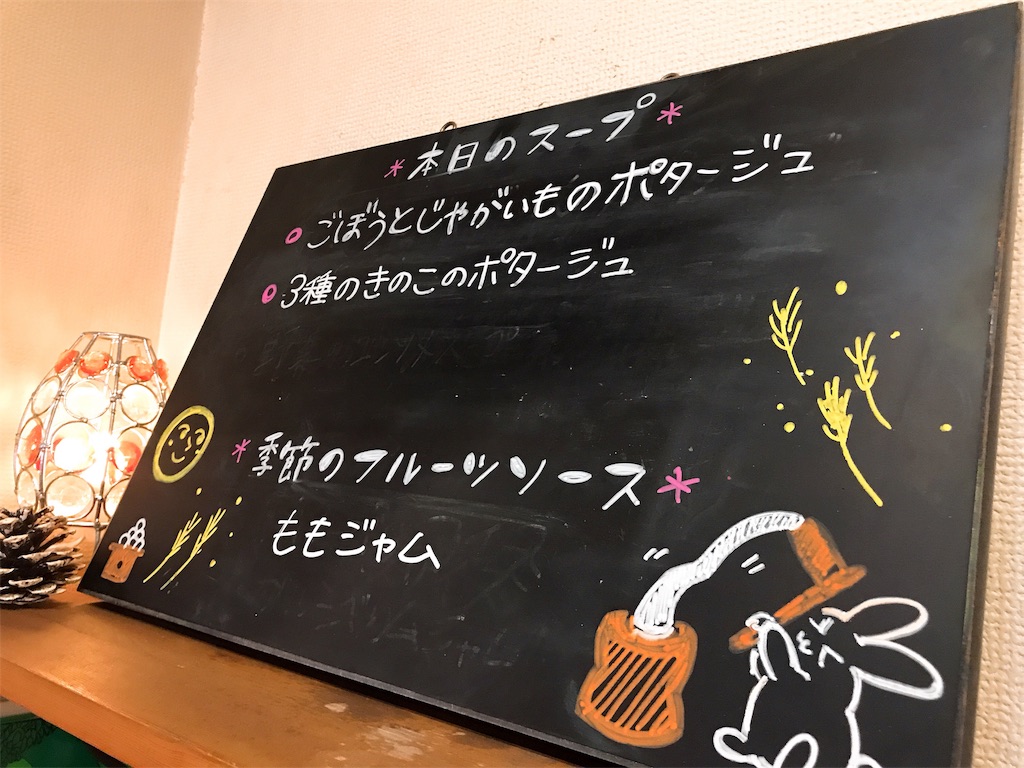 *本日のスープ*
ごぼうとじゃがいものポタージュ
3種のきのこのポタージュ
*季節のフルーツソース*
ももジャム